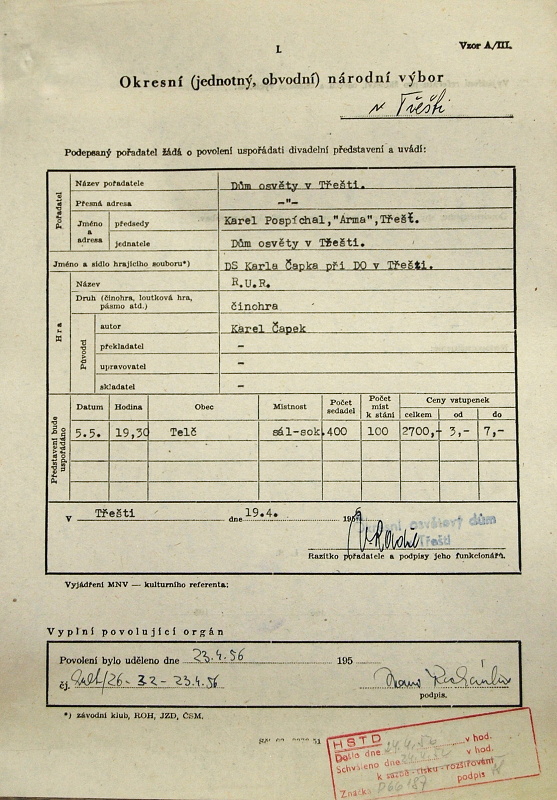 I.
Vzor A/III.
Okresní (jednotný, obvodní) národní výbor
v Třešti
Podepsaný pořadatel žádá o povolení uspořádati divadelní představení a uvádí:
Pořadatel
Název pořadatele Dům osvěty v Třešti.
Přesná adresa -"-
Jméno a adresa předsedy Karel Pospíchal,"Arma",Třešť.
jednatele Dům osvěty v Třešti.
Jméno a sídlo hrajícího souboru*) DS Karla Čapka při DO v Třešti.
Hra
Název R.U.R.
Druh (činohra, loutková hra, pásmo atd.) činohra
Původci
autor Karel Čapek
překladatel -
upravovatel -
skladatel -
Představení bude uspořádáno
Datum Hodina Obec Místnost Počet sedadel Počet míst k stání Ceny vstupenek
celkem od do
5.5. 19,30 Telč sál-sok. 400 100 2700,- 3,- 7,-
V Třešti dne 19.4. 195
osvětový dům
Třešti
Razítko pořadatele a podpisy jeho funkcionářů.
Vyjádření MNV — kulturního referenta:
Vyplní povolující orgán
Povolení bylo uděleno dne 23.4.56 195
čj. /26 - 32 - 23.4.56
podpis.
*) závodní klub, ROH, JZD, ČSM.
HSTD
Došlo dne 24.4. v hod.
Schváleno dne v hod.
k sazbě - tisku - rozšiřování
Značka podpis